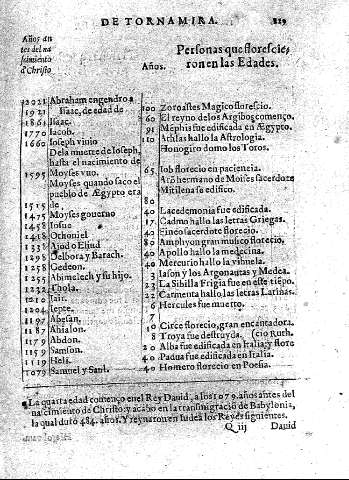 DE TORNAMIRA. 119
Años an
tes del na
scimiento
d'Christo
Personas que florescie,
Años. ron en las Edades.
2021 Abraham engendro a 100 Zoroastes Magico florescio.
1921 Isaac, de edad de 60 El reyno de los Argibos començo.
1861 Isaac. 91 Mẽphis fue edificada en Ægypto.
1770 Iacob. 110 Athlas hallo la Astrologia.
1660 Ioseph vinio Honogiro domo los Toros.
Dela muerte de Ioseph,
hasta el nacimiento de 65 Iob florecio en paciencia.
1595 Moyses vuo. Arõ hermano de Moises sacerdote
Moyses quando saco el Mitilena se edifico.
pueblo de Ægypto era 80
1515 de 40 Lacedemonia fue edificada.
1475 Moyses gouerno 17 Cadmo hallo las letras Griegas.
1458 Iosue 40 Fineo sacerdote florecio.
1418 Othoniel 80 Amphyon gran musico florecio.
1338 Ajod o Eliud 40 Apollo hallo la medecina.
1298 Delbora y Barach. 40 Mercurio hallo la vihuela.
1258 Gedeon. 3 Iason y los Argonautas y Medea.
1255 Abimelech y su hijo. 23 La Sibilla Frigia fue en este tiẽpo.
1232 Thola. 22 Carmenta hallo las letras Latinas.
1210 Iair. 6 Hercules fue muerto.
1204 Iepte. 7
1197 Abesan. 10 Circe florecio, gran encantadora.
1187 Ahialon. 8 Troya fue destruyda. (cio Ruth.
1179 Abdon. 20 Alba fue edificada en Italia; y flore
1159 Samson. 40 Padua fue edificada en Italia.
1119 Heli. 40 Homero florecio en Poesia.
1079 Samuel y Saul.
La quarta edad començo en el Rey Dauid, a los 1079. años antes del
nascimiento de Christo: y acabo en la transmigracion de Babylonia,
la qual duro 484. años. Y reynaron en Iudea los Reyes siguientes.
Q iij Dauid